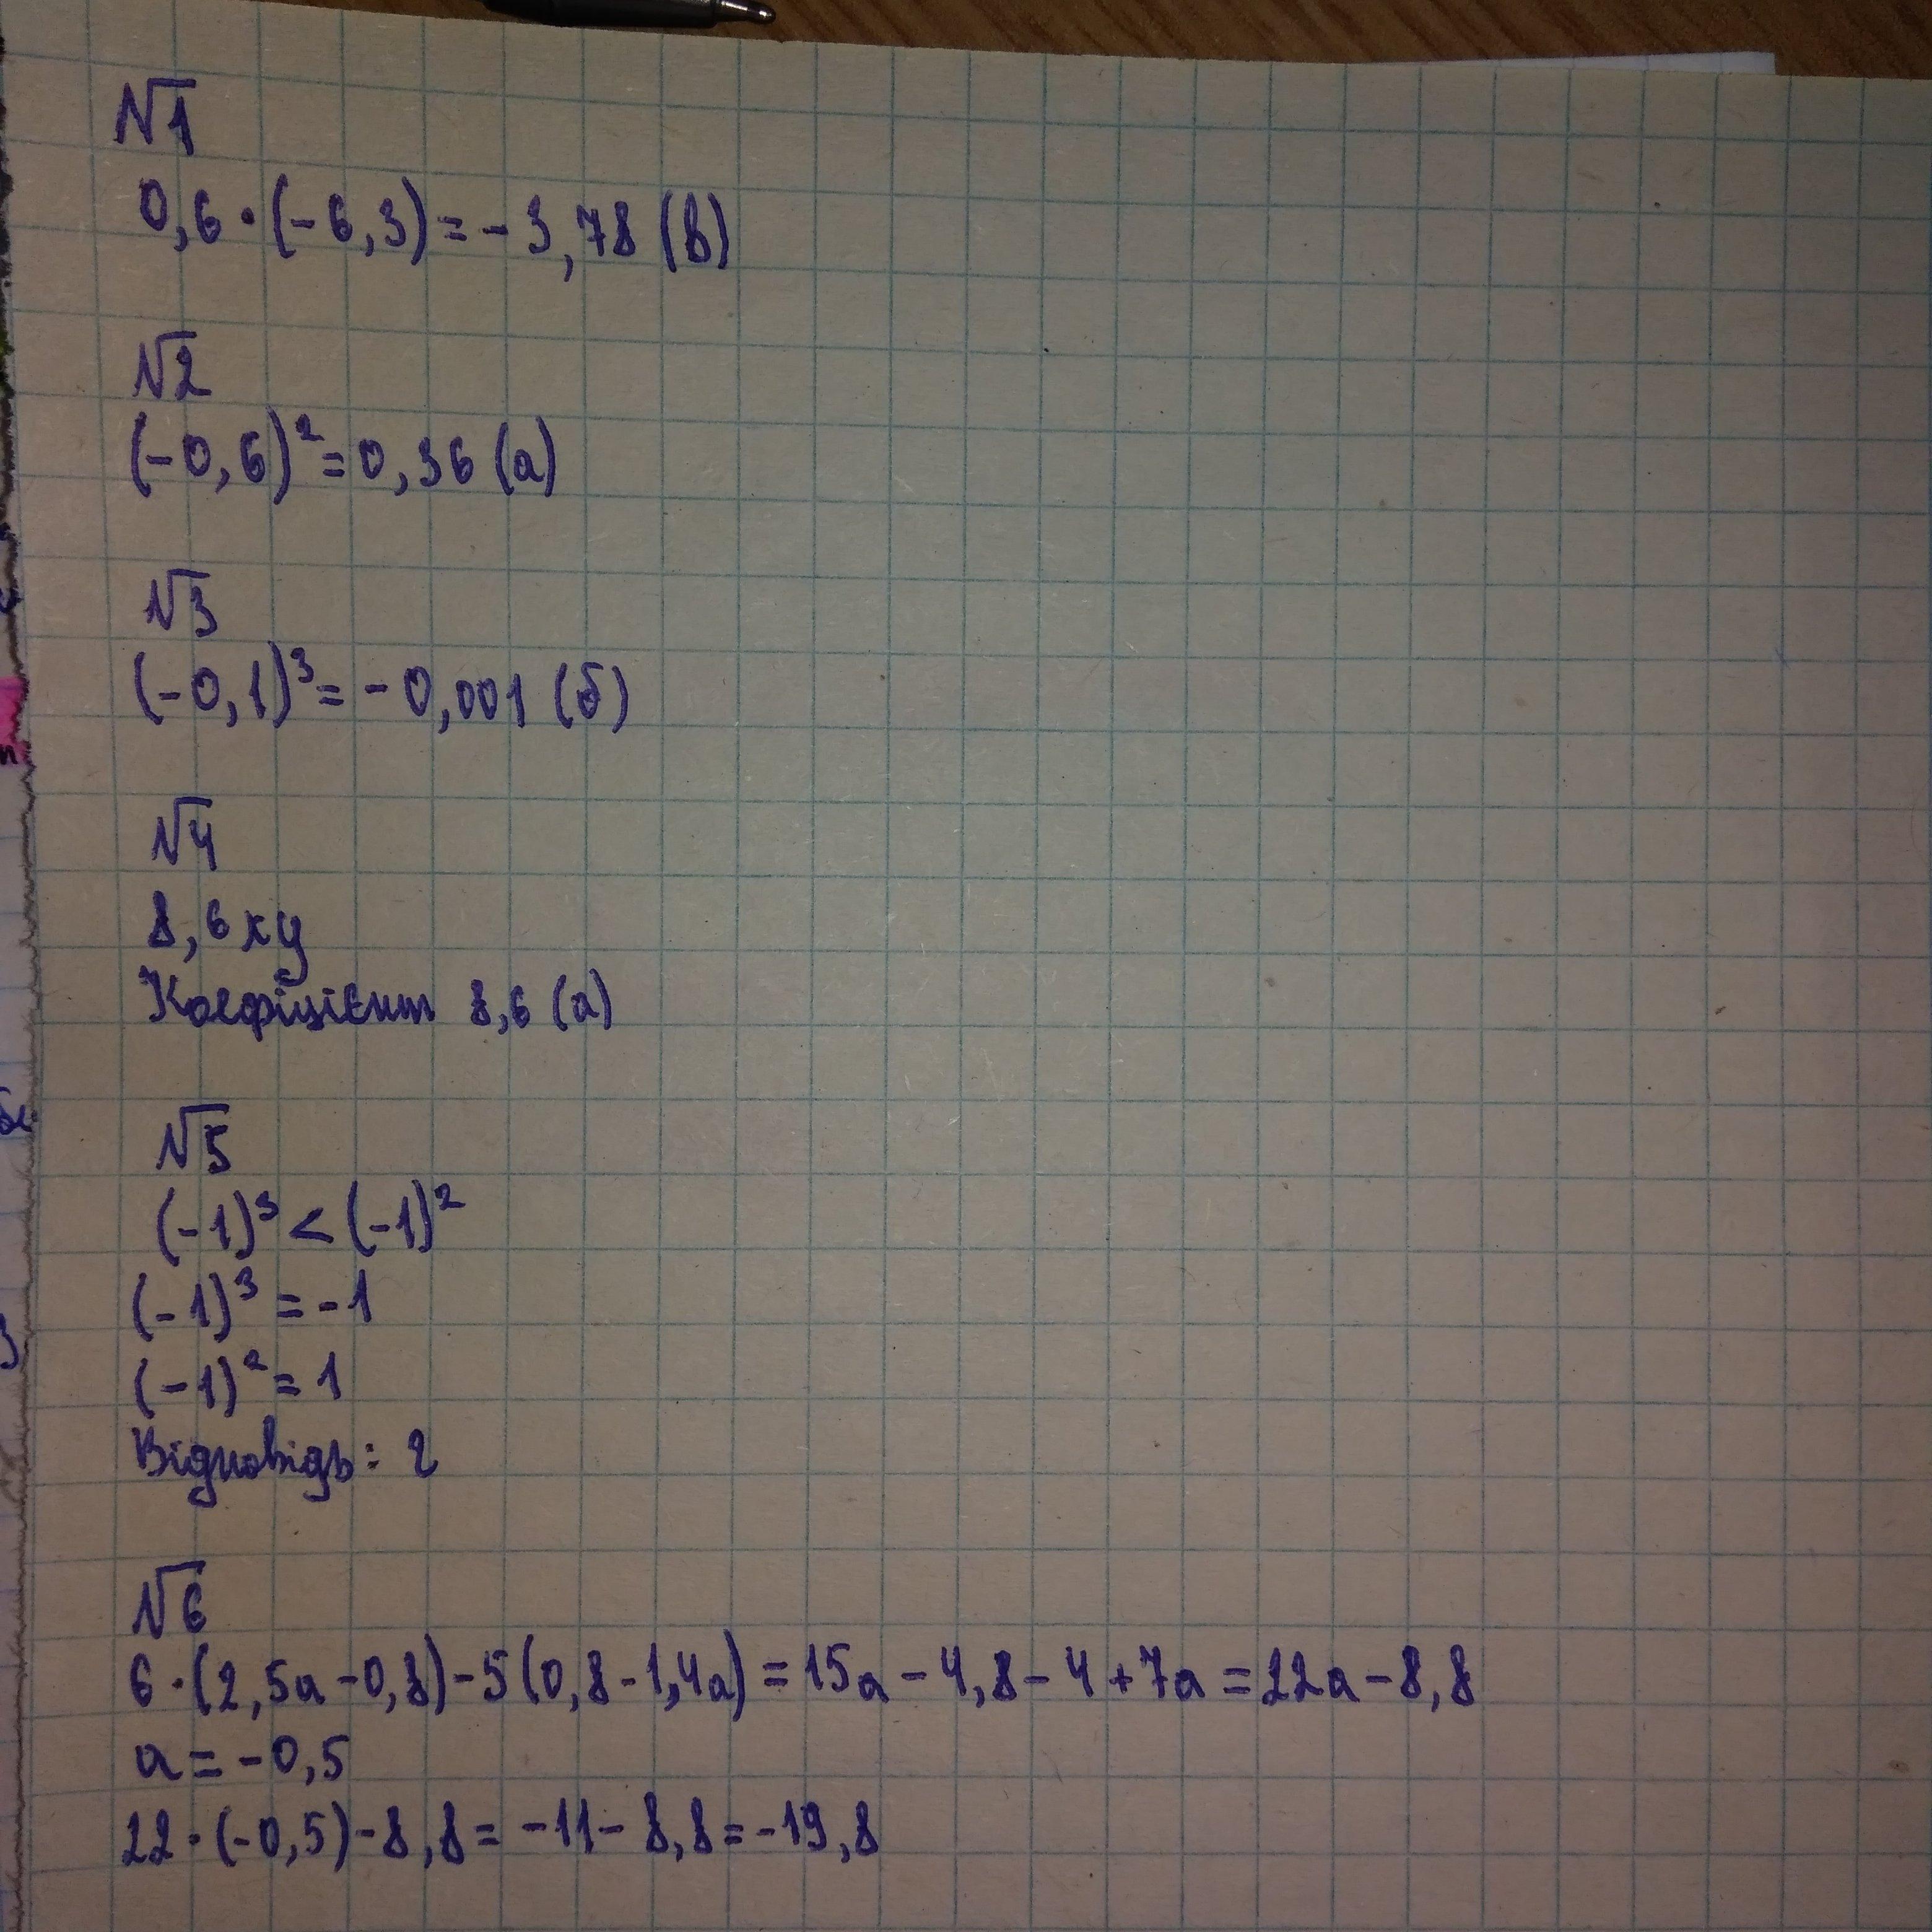 №1
0,6·(-6,3)=-3,78 (в)
№2
(-0,6)²=0,36 (а)
№3
(-0,1)³=-0,001 (б)
№4
8,6xy
Коефіцієнт 8,6 (а)
№5
(-1)³<(-1)²
(-1)³=-1
(-1)²=1
Відповідь: 2
№6
6·(2,5a-0,8)-5(0,8-1,4a)=15a-4,8-4+7a=22a-8,8
a=-0,5
22·(-0,5)-8,8=-11-8,8=-19,8